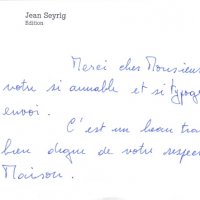 Jean Seyrig
Edition
Merci cher Monsieur
votre si aimable et si typogr
envoi.
C'est un beau tra
bien digne de votre respec
Maison.